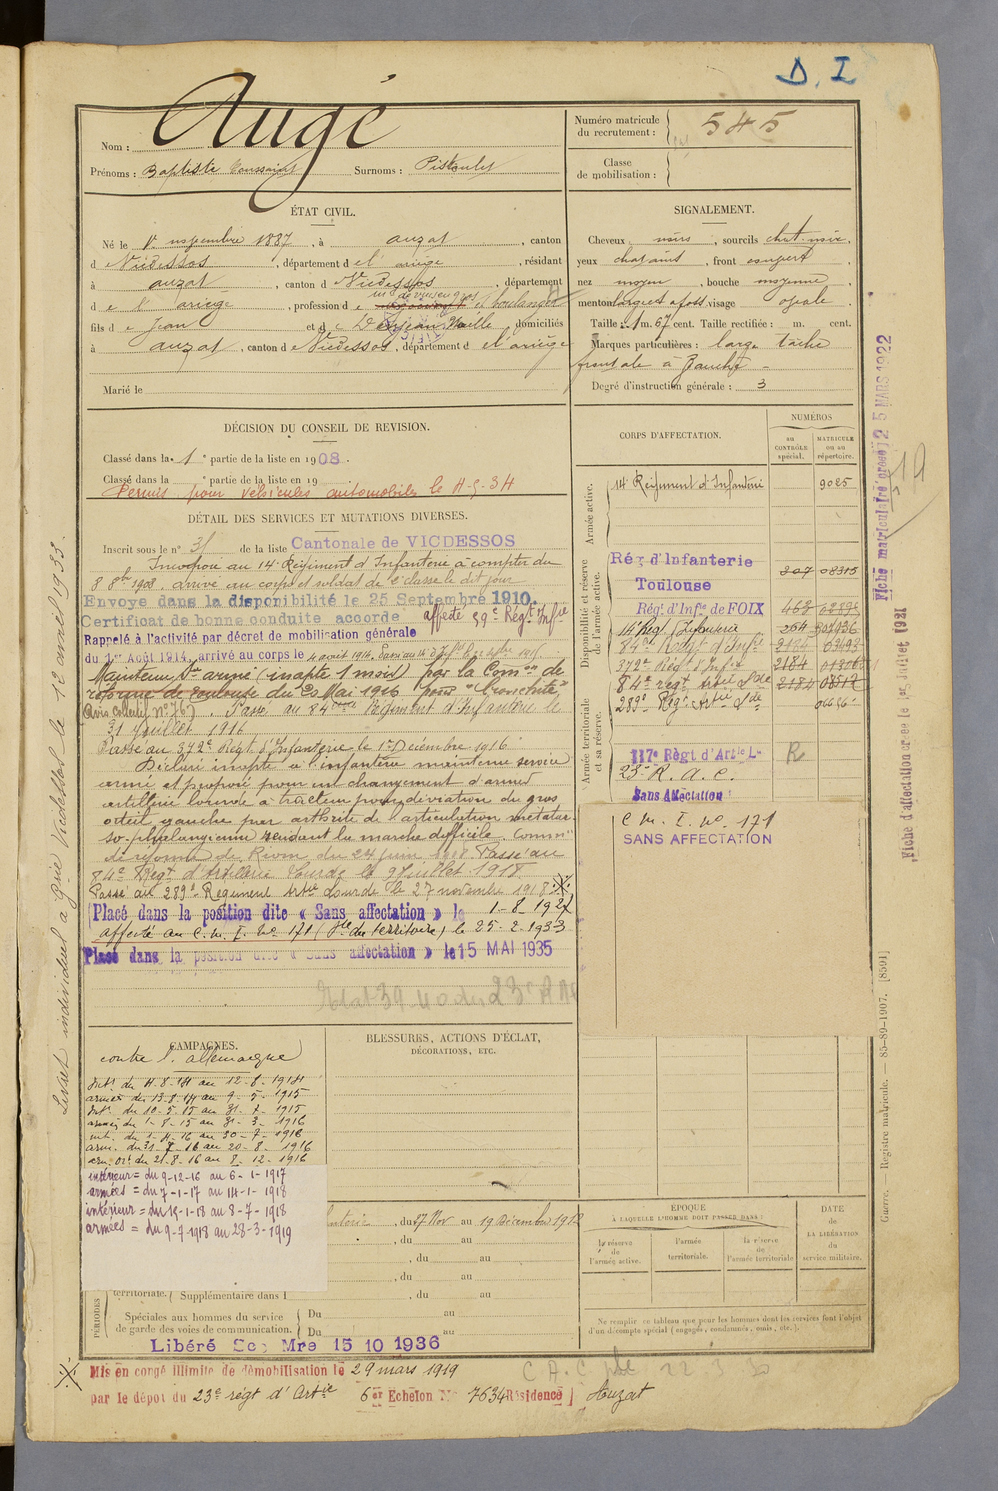 D. I
Nom : Augé
Prénoms : Baptiste Toussaint Surnoms : Pistoulet
Numéro matricule du recrutement : 545
Classe de mobilisation :
ÉTAT CIVIL.
Né le 1er novembre 1887, à auzat, canton
d e Vicdessos, département d e l'ariège, résidant
à auzat, canton d e Vicdessos, département
d e l'ariège, profession d e et boulanger
fils d e Jean et d e domiciliés
à auzat, canton d e Vicdessos, département d e l'ariège
Marié le
SIGNALEMENT.
Cheveux noirs, sourcils chat. noir,
yeux chatains, front
nez moyen, bouche moyenne,
menton large et à foss. visage ovale
Taille : 1 m. 67 cent. Taille rectifiée : m. cent.
Marques particulières : large tache
frontale à gauche -
Degré d'instruction générale : 3
DÉCISION DU CONSEIL DE REVISION.
Classé dans la 1e partie de la liste en 1908.
Classé dans la e partie de la liste en 19
Permis pour véhicules automobiles le 4-5-34
DÉTAIL DES SERVICES ET MUTATIONS DIVERSES.
Inscrit sous le n° 31 de la liste Cantonale de VICDESSOS
Incorporé au 14e Régiment d'Infanterie à compter du
8 8bre 1908, arrivé au corps et soldat de 2e classe le dit jour
Envoyé dans la disponibilité le 25 Septembre 1910.
Certificat de bonne conduite accordé affecté 59e Régt Infie
Rappelé à l'activité par décret de mobilisation générale
du 1er Août 1914, arrivé au corps le 4 août 1914.
Maintenu Sce armé (inapte 1 mois) par la Comon de
réforme de Toulouse du 20 Mai 1916 pour "bronchite"
(Avis collectif n° 767). Passé au 84eme Régiment d'Infanterie le
31 juillet 1916
Passé au 372e Régt d'Infanterie le 1er Décembre 1916
Déclaré inapte à l'infanterie maintenu service
armé et proposé pour un changement d'arme
artillerie lourde à tracteur pour déviation du gros
orteil gauche par arthrite de l'articulation métatar-
so-phalangienne rendant la marche difficile. Common
de réforme de Riom du 24 juin 1918. Passé au
84e Régt d'Artillerie Lourde le 9 Juillet 1918.
Passé au 289e Régiment Artie Lourde le 27 novembre 1918 ·X·
Placé dans la position dite « Sans affectation » le 1-8-1927
affecté au C. M. I. No 171 (Sce du territoire) le 25-2-1933
Placé dans la position dite « Sans affectation » le 15 MAI 1935
CORPS D'AFFECTATION.
NUMÉROS
au CONTRÔLE spécial.
MATRICULE ou au répertoire.
Armée active.
14e Régiment d'Infanterie 9025
Disponibilité et réserve de l'armée active.
Rég d'Infanterie
Toulouse 307 08315
Rég. d'Infie de FOIX 468
14e Régt d'Infanterie 264
84e Régt d'Infie
372e Régt d'Infie 2184
84e régt Artie Lde 2184
289e Régt Artie Lde
Armée territoriale et sa réserve.
117e Régt d'Artie Lde R
23e R. A. C.
Sans Affectation
C. M. I. no. 171
SANS AFFECTATION
CAMPAGNES.
contre l'allemagne
intr du 4-8-14 au 12-8-1914
armées du 13-8-14 au 9-5-1915
intr du 10-5-15 au 31-7-1915
armées du 1-8-15 au 31-3-1916
int. du 1-4-16 au 30-7-1916
arm. du 31-7-16 au 20-8-1916
arm. ort du 21-8-16 au 8-12-1916
intérieur = du 9-12-16 au 6-1-1917
armées = du 7-1-17 au 14-1-1918
intérieur = du 15-1-18 au 8-7-1918
armées = du 9-7-1918 au 28-3-1919
BLESSURES, ACTIONS D'ÉCLAT,
DÉCORATIONS, ETC.
PÉRIODES
, du 27 Nov au 19 Décembre 1912
, du au
, du au
, du au
territoriale. Supplémentaire dans l , du au
Spéciales aux hommes du service Du au
de garde des voies de communication. Du au
Libéré Sce Mre 15 10 1936
ÉPOQUE
À LAQUELLE L'HOMME DOIT PASSER DANS :
la réserve de l'armée active.
l'armée territoriale.
la réserve de l'armée territoriale
DATE de LA LIBÉRATION du service militaire.
Ne remplir ce tableau que pour les hommes dont les services font l'objet
d'un décompte spécial (engagés, condamnés, omis, etc.).
·X· Mis en congé illimité de démobilisation le 29 mars 1919
par le dépôt du 23e régt d'Artie 6er Echelon N° 7634 Résidence Auzat
Livret individuel a grie Vicdessos le 12 avril 1933.
Fiche matriculaire dressée 25 MARS 1922
Fiche d'affectation créée le 25 Juillet 1921
Guerre. — Registre matricule. — 85-89-1907. [8591]